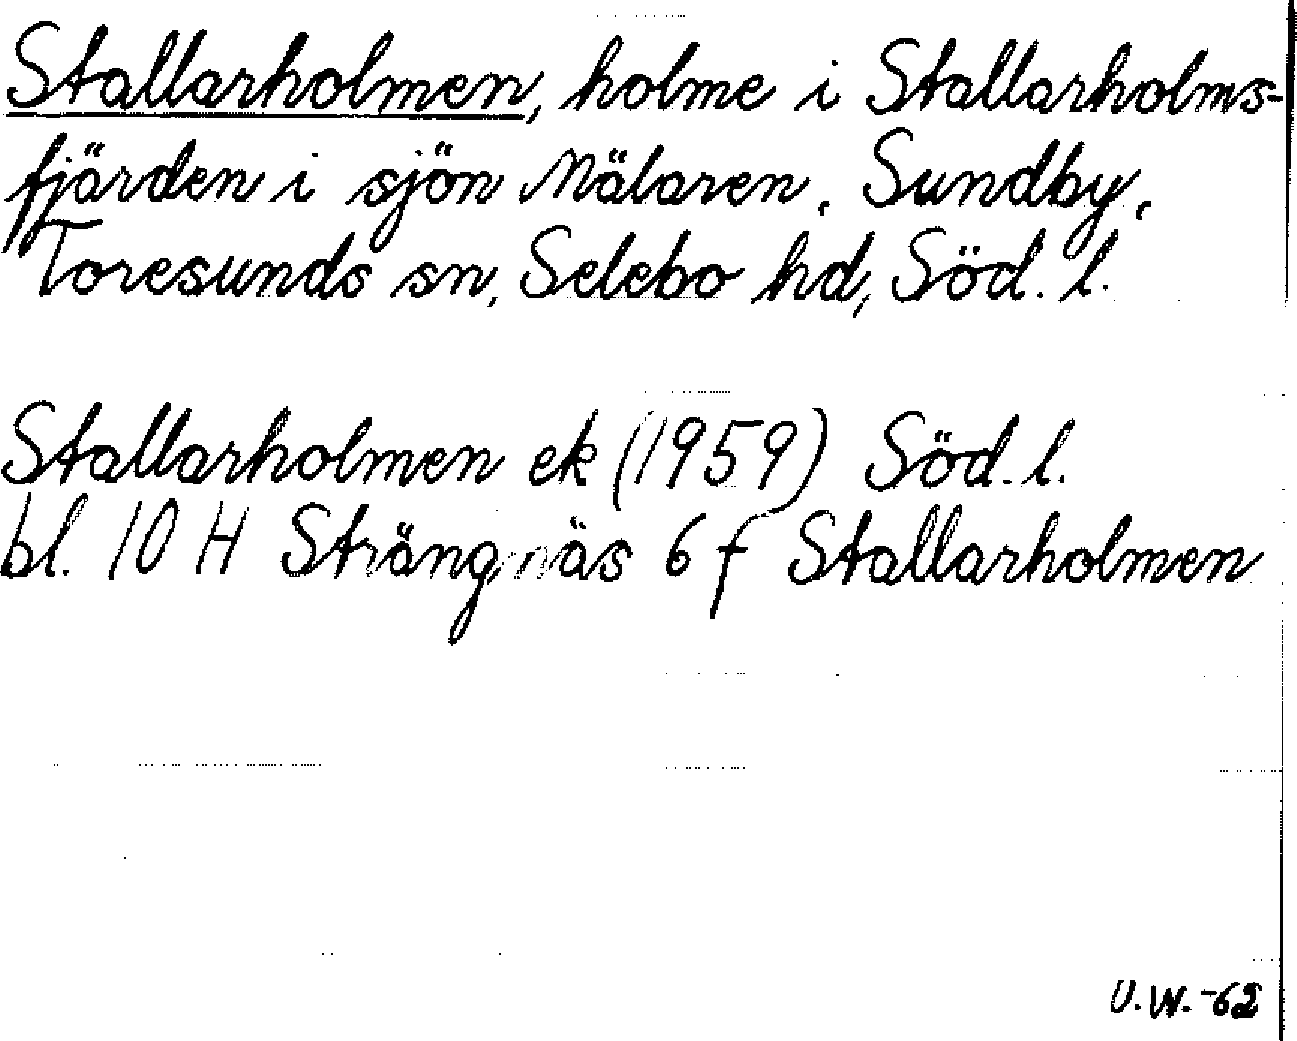 Stallarholmen, holme i Stallarholms-
fjärden i sjön Mälaren, Sundby,
Toresunds sn, Selebo hd, Söd. l.
Stallarholmen ek (1959) Söd. l.
bl. 10 H Strängnäs 6 f Stallarholmen
U.W.-62